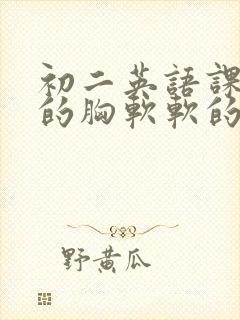 初二英語課
的胸軟軟的
野黄瓜